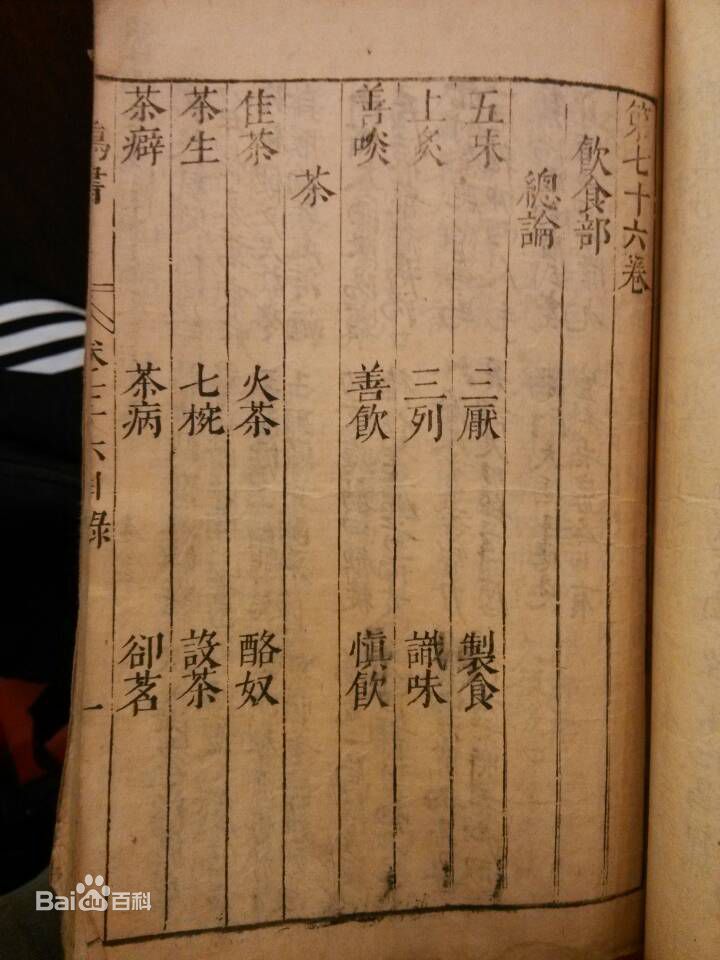 第七十六卷
飲食部
總論
五味 三厭 製食
上炙 三列 識味
善啖 善飲 慎飲
茶
佳茶 火茶 酪奴
茶生 七椀 設茶
茶癖 茶病 卻茗
書 卷七十六目錄 一
Bai du 百科